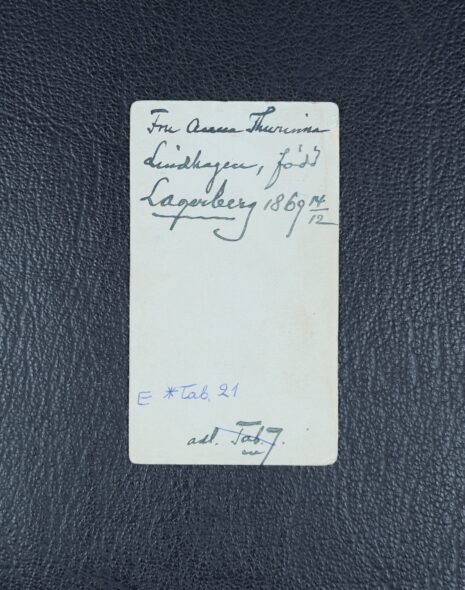 Fru Anna Thurinna
Lindhagen, född
Lagerberg 1869 14/12
E * Tab. 21
adl. Tab. 7.